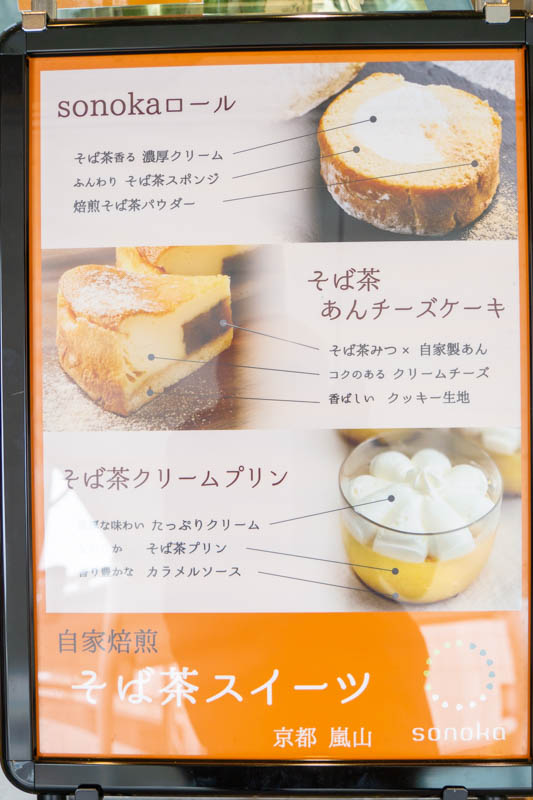 sonokaロール
そば茶香る 濃厚クリーム
ふんわり そば茶スポンジ
焙煎そば茶パウダー
そば茶
あんチーズケーキ
そば茶みつ× 自家製あん
コクのある クリームチーズ
香ばしい クッキー生地
そば茶クリームプリン
な味わい たっぷりクリーム
か そば茶プリン
香り豊かな カラメルソース
自家焙煎
そば茶スイーツ
京都 嵐山
sonoka